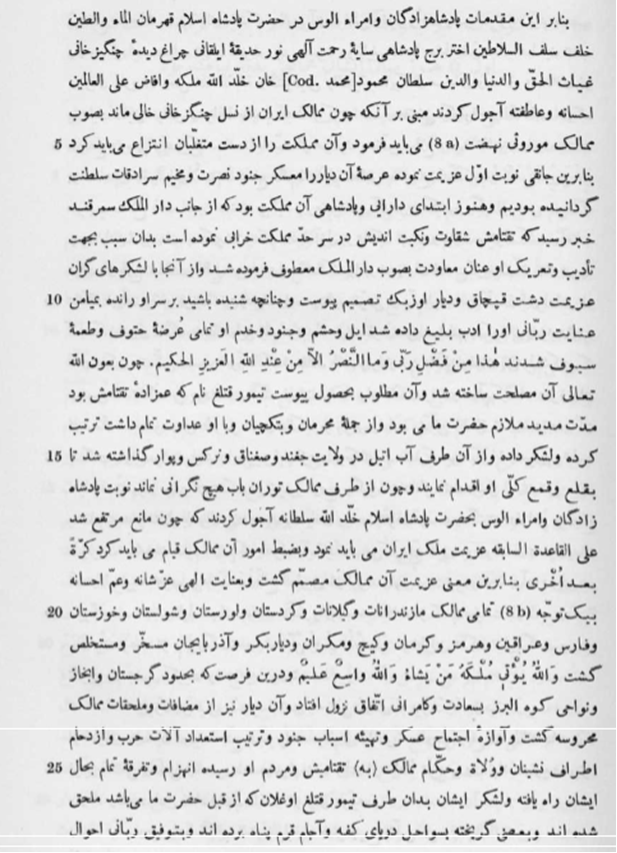 بنابر این مقدمات پادشاهزادگان وامراء الوس در حضرت پادشاه اسلام قهرمان الماء والطین
خلف سلف السلاطین اختر برج پادشاهی سایۀ رحمت آلهی نور حدیقۀ ایلقانی چراغ دیدۀ چنگیزخانی
غیاث الحقّ والدنیا والدین سلطان محمود[محمد .Cod] خان خلّد الله ملکه وافاض علی العالمین
احسانه وعاطفته آجول کردند مبنی بر آنکه چون ممالک ایران از نسل چنگزخانی خالی ماند بصوب
ممالک موروثی نهضت (8 a) می‌باید فرمود وآن مملکت را از دست متغلّبان انتزاع می‌باید کرد 5
بنابرین جانقی نوبت اوّل عزیمت نموده عرصۀ آن دیار را معسکر جنود نصرت ومخیم سرادقات سلطنت
گردانیده بودیم وهنوز ابتدای دارائی وپادشاهی آن مملکت بود که از جانب دار الملک سمرقند
خبر رسید که تقتامش شقاوت ونکبت اندیش در سر حدّ مملکت خرابی نموده است بدان سبب بجهت
تأدیب وتعریک او عنان معاودت بصوب دار الملک معطوف فرموده شد واز آنجا با لشکرهای گران
عزیمت دشت قپچاق ودیار اوزبک تصمیم پیوست وچنانچه شنیده باشید بر سر او رانده بمیامن 10
عنایت ربّانی اورا ادب بلیغ داده شد ایل وحشم وجنود وخدم او تمامی عُرضۀ حتوف وطعمۀ
سیوف شدند هٰذا مِنْ فَضْلِ رَبّی وَما النَّصْرُ الاّ مِنْ عِنْدِ اللهِ العَزیزِ الحکیمِ. چون بعون الله
تعالی آن مصلحت ساخته شد وآن مطلوب بحصول پیوست تیمور قتلغ نام که عمزادۀ تقتامش بود
مدّت مدید ملازم حضرت ما می بود واز جملۀ محرمان وبتکچیان وبا او عداوت تمام داشت ترتیب
کرده ولشکر داده واز آن طرف آب اتیل در ولایت جغند وصغناق ونرکس وپوار گذاشته شد تا 15
بقلع وقمع کلّی او اقدام نمایند وچون از طرف ممالک توران باب هیچ نگرانی نماند نوبت پادشاه
زادگان وامراء الوس بحضرت پادشاه اسلام خلّد الله سلطانه آجول کردند که چون مانع مرتفع شد
علی القاعدة السابقه عزیمت ملک ایران می باید نمود وبضبط امور آن ممالک قیام می باید کرد کرّةً
بعد اُخْری بنابرین معنی عزیمت آن ممالک مصمّم گشت وبعنایت الهی عزّ شانه وعمّ احسانه
بیک توجّه (8 b) تمامی ممالک مازندرانات وگیلانات وکردستان ولورستان وشولستان وخوزستان 20
وفارس وعراقین وهرمز وکرمان وکیج ومکران ودیاربکر وآذربایجان مسخّر ومستخلص
گشت وَاللهُ یُؤْتِی مُلْکَهُ مَنْ یَشاءُ وَاللهُ واسِعٌ عَلیمٌ ودرین فرصت که بحدود گرجستان وابخاز
ونواحی کوه البرز بسعادت وکامرانی اتّفاق نزول افتاد وآن دیار نیز از مضافات وملحقات ممالک
محروسه گشت وآوازۀ اجتماع عسکر وتهیئه اسباب جنود وترتیب استعداد آلات حرب وازدحام
اطراف نشینان ووُلاة وحکّام ممالک (به) تقتامیش ومردم او رسیده انهزام وتفرقۀ تمام بحال 25
ایشان راه یافته ولشکر ایشان بدان طرف تیمور قتلغ اوغلان که از قبل حضرت ما می‌باشد ملحق
شده اند وبعضی گریخته بسواحل دریای کفه وآجام قرم پناه برده اند وبتوفیق ربّانی احوال